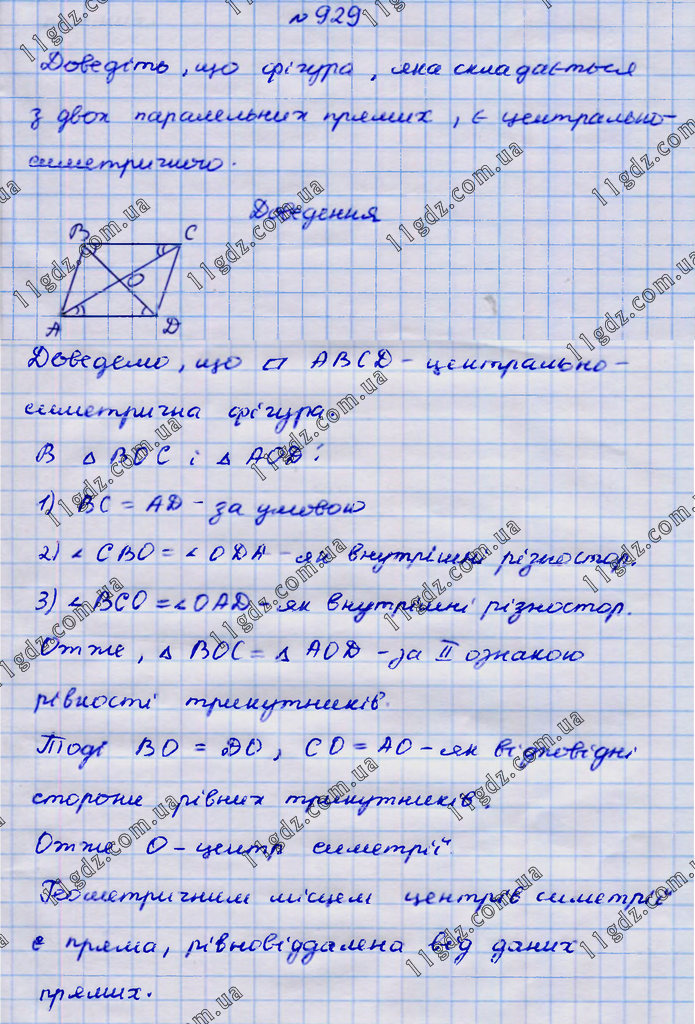 № 929
Доведіть, що фігура, яка складається
з двох паралельних прямих, є центрально-
симетричною.
Доведення
B C
O
A D
Доведемо, що ▱ ABCD - центрально-
симетрична фігура.
В △ BOC і △ AOD:
1) BC = AD - за умовою
2) ∠ CBO = ∠ ODA - як внутрішні різностор.
3) ∠ BCO = ∠ OAD - як внутрішні різностор.
Отже, △ BOC = △ AOD - за II ознакою
рівності трикутників.
Тоді BO = DO, CO = AO - як відповідні
сторони рівних трикутників.
Отже O - центр симетрії.
Геометричним місцем центрів симетрії
є пряма, рівновіддалена від даних
прямих.
11gdz.com.ua